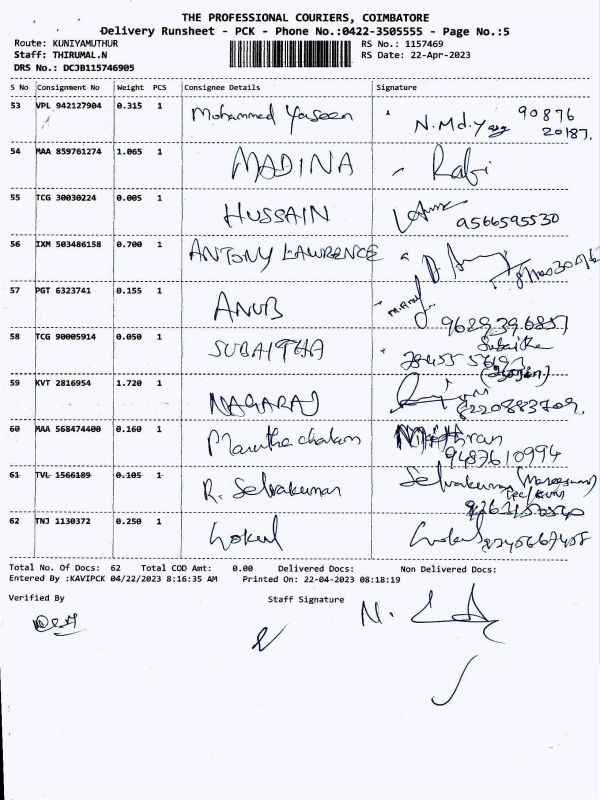 THE PROFESSIONAL COURIERS, COIMBATORE
Delivery Runsheet - PCK - Phone No.:0422-3505555 - Page No.:5
Route: KUNIYAMUTHUR RS No.: 1157469
Staff: THIRUMAL.N RS Date: 22-Apr-2023
DRS No.: DCJB115746905
S No Consignment No Weight PCS Consignee Details Signature
53 VPL 942127904 0.315 1 Mohammed Yaseen N.Md.Y 90876
20187.
54 MAA 859761274 1.065 1 MADINA Rafi
55 TCG 30030224 0.005 1 HUSSAIN 9566595530
56 IXM 503486158 0.700 1 ANTONY LAWRENCE
57 PGT 6323741 0.155 1 ANUB
9629396857
58 TCG 90005914 0.050 1 SUBAITHA Subaitha
59 KVT 2816954 1.720 1 NAGARAJ
60 MAA 568474400 0.160 1 Marutha chalam
9487610994
61 TVL 1566189 0.105 1 R. Selvakumar Selvakumar
62 TNJ 1130372 0.250 1 Gokul Gokul
Total No. Of Docs: 62 Total COD Amt: 0.00 Delivered Docs: Non Delivered Docs:
Entered By :KAVIPCK 04/22/2023 8:16:35 AM Printed On: 22-04-2023 08:18:19
Verified By Staff Signature N.